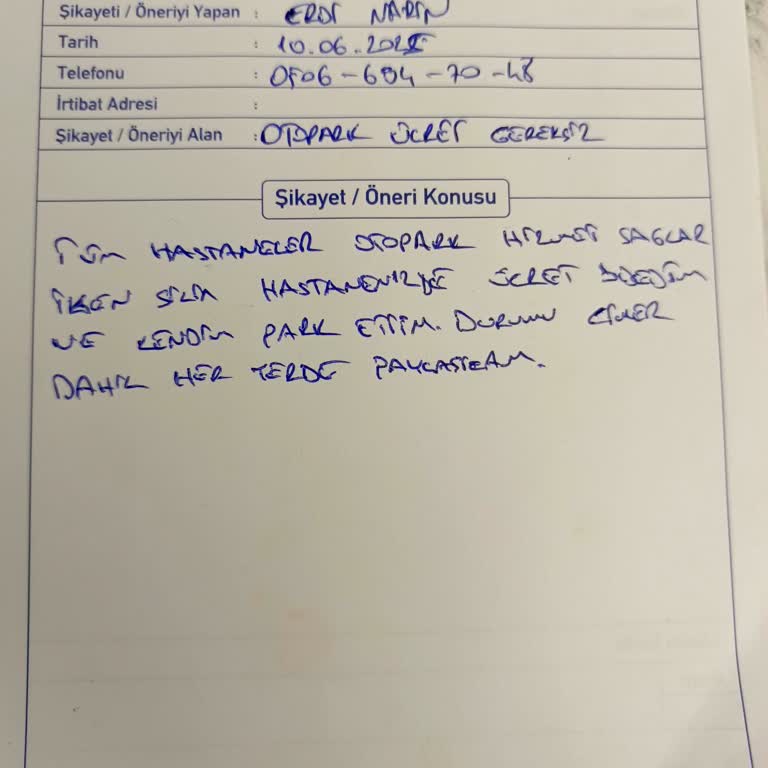 Şikayeti / Öneriyi Yapan : ERDİ NARİN
Tarih : 10.06.2025
Telefonu : 0506-694-70-48
İrtibat Adresi :
Şikayet / Öneriyi Alan : OTOPARK ÜCRET GEREKSİZ
Şikayet / Öneri Konusu
TÜM HASTANELER OTOPARK HİZMETİ SAĞLAR
İKEN SİZİN HASTANENİZDE ÜCRET ÖDEDİM
VE KENDİM PARK ETTİM. DURUMU CİMER
DAHİL HER YERDE PAYLAŞICAM.